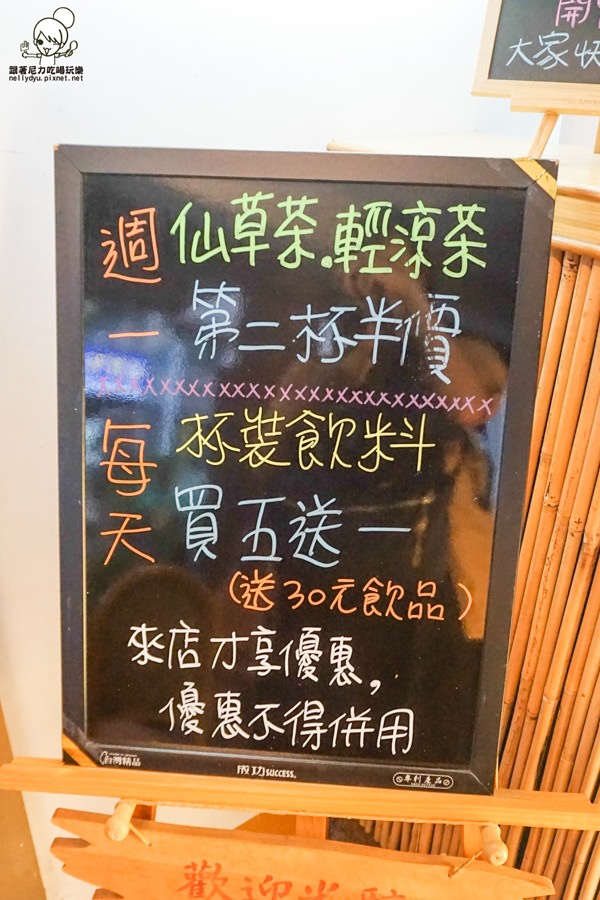 跟著尼力吃喝玩樂
nellydyu.pixnet.net
大家快
週一
仙草茶.輕涼茶
第二杯半價
每天
杯裝飲料
買五送一
(送30元飲品)
來店才享優惠,
優惠不得併用
台灣精品
成功SUCCESS
專利產品
歡迎光臨